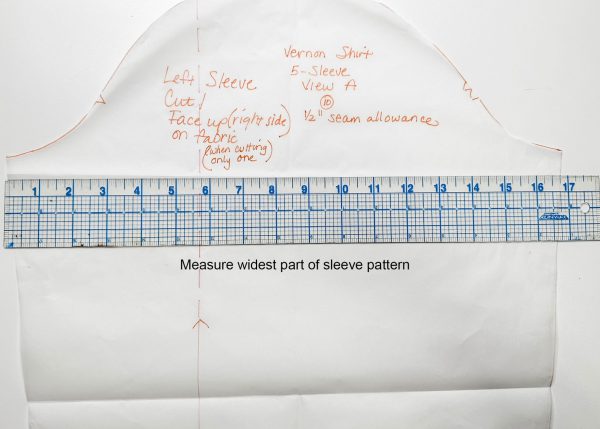 Left Sleeve
Cut 1
Face up (right side)
on fabric
(when cutting)
(only one)
Vernon Shirt
5-Sleeve
View A
10
1/2" seam allowance
1 2 3 4 5 6 7 8 9 10 11 12 13 14 15 16 17
Measure widest part of sleeve pattern